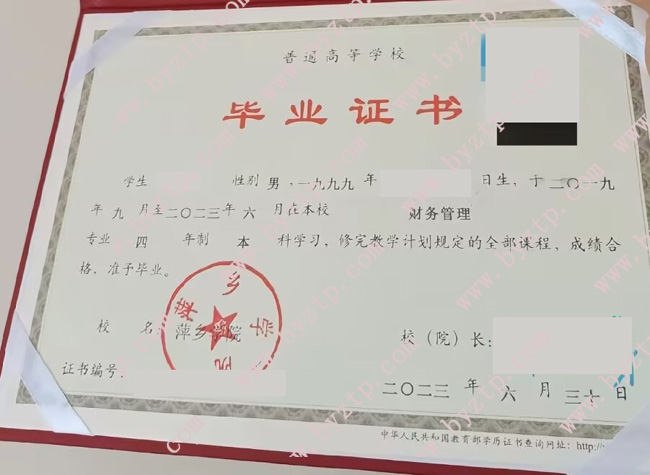 普通高等学校
毕业证书
学生 性别 男，一九九九年 日生，于二〇一九
年九月至二〇二三年六月在本校 财务管理
专业 四 年制 本 科学习，修完教学计划规定的全部课程，成绩合
格，准予毕业。
校 名：萍乡学院
校（院）长：
证书编号：
二〇二三年六月三十日
中华人民共和国教育部学历证书查询网址：http://
萍乡学院
www.byztp.com